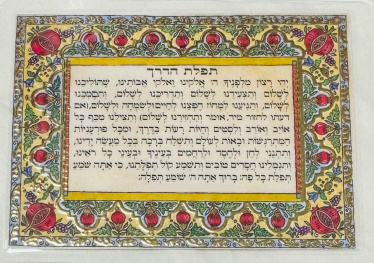 תפלת הדרך
יהי רצון מלפניך ה׳ אלקינו ואלקי אבותינו, שתוליכנו
לשלום ותצעידנו לשלום ותדריכנו לשלום, ותסמכנו
לשלום, ותגיענו למחוז חפצנו לחיים ולשמחה ולשלום, (ואם
דעתו לחזור מיד, אומר ותחזירנו לשלום) ותצילנו מכף כל
אויב ואורב ולסטים וחיות רעות בדרך, ומכל פורעניות
המתרגשות ובאות לעולם ותשלח ברכה בכל מעשה ידינו,
ותתננו לחן ולחסד ולרחמים בעיניך ובעיני כל רואינו,
ותגמלנו חסדים טובים ותשמע קול תפלתנו, כי אתה שומע
תפלת כל פה: ברוך אתה ה׳ שומע תפלה: